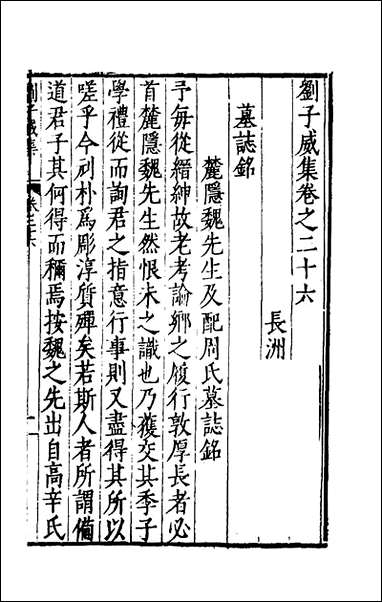 劉子威集卷之二十六
長洲
墓誌銘
麓隱魏先生及配周氏墓誌銘
予每從縉紳故老考論鄉之履行敦厚長者必
首麓隱魏先生然恨未之識也乃獲交其季子
學禮從而詢君之指意行事則又盡得其所以
嗟乎今刓朴爲彫淳質殫矣若斯人者所謂備
道君子其何得而稱焉按魏之先出自高辛氏
劉子威集
卷之二六
一